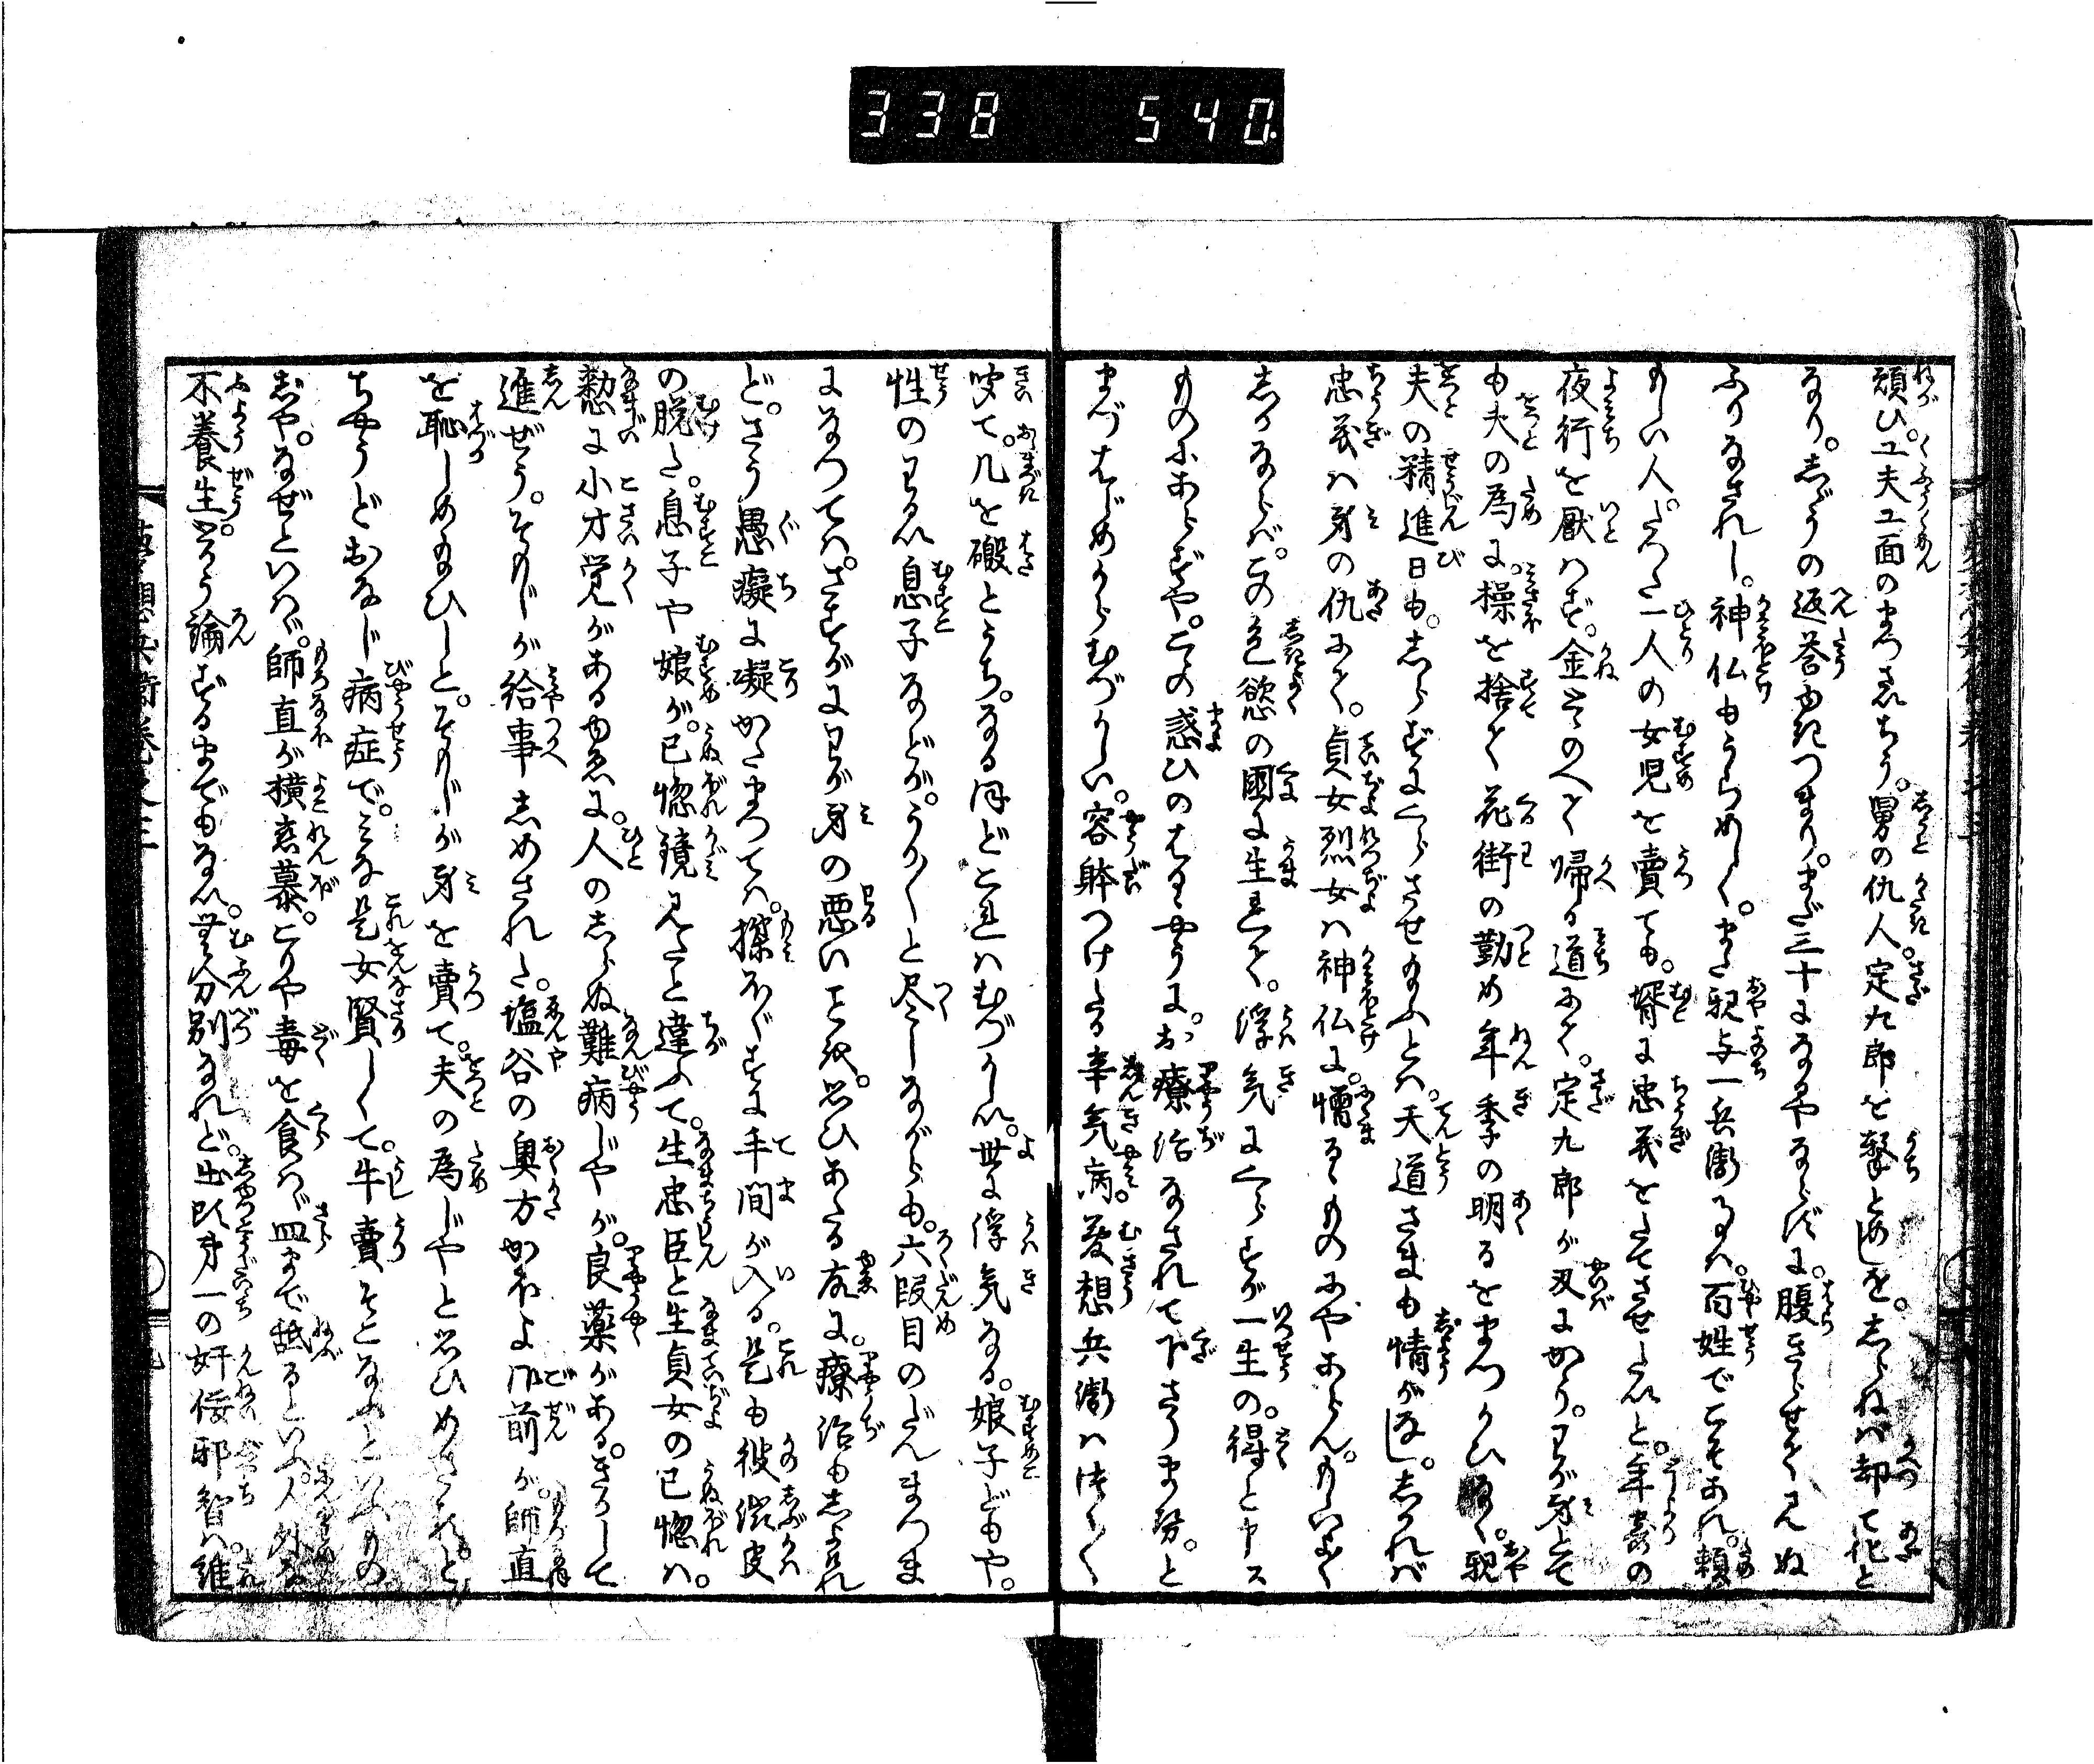 338 540.
願ひ。工夫工面のまつさいちう。舅の仇人。定九郎を撃とめしを。しらねば却て仇と
なり。しどうの返答ゆきつまり。まだ三十になるやならずに。腹きらせて見ぬ
ふりなされし。神仏もうらめしく。また親与一兵衛るは。百姓でこそあれ。頼
もしい人。たつた一人の女児を賣ても。婿に忠義をたてさせたいと。年寄の
夜行を厭はず。金とゝのへて帰る道にて。定九郎が刃にかゝり。わが身とて
も夫の為に。操を捨て花街の勤め年季の明るをまつかひなく。親
夫の精進日も。しらずにくらさせ給ふとは。天道さまも情がなし。しかれば
忠義は身の仇にて。貞女烈女は神仏に。憎るゝものにやあらん。もしいよ〳〵
しかならば。この色慾の國に生れて。浮気にくらすが一生の。得と申ス
ものにあらずや。この惑ひのはるやうに。お療治なされて下さりませ。と
まづはじめからむづかしい。容躰つけたる辛気病。夢想兵衛はつく〴〵
聞て。几を礑とうち。なる程どこれはむづかしい。世に浮気なる。娘子どもや。
性のわるい息子などが。うか〳〵と尽しながらも。六段目のだんまつま
になつては。さすがにわが身の悪いことを。思ひあたる故に。療治もしよけれ
ど。さう愚癡に凝かたまつては。擽ほぐすに手間が入る。是も彼渋皮
の脱た。息子や娘が。己惚鏡見たと違ふて。生忠臣と生貞女の己惚は。
懃に小才覚があるゆゑに。人のしらぬ難病じやが。良薬がある。さうして
進ぜう。そもじが給事しめされた。塩谷の奥方かほよ御前が。師直
を恥しめ給ひしと。そもじが身を賣て。夫の為じやと思ひめさるゝと
ちやうどおなじ病症で。みな是女賢しくて。牛賣そこなふといふもの
じや。なぜといはゞ。師直が横恋慕。こりや毒を食はゞ皿まで舐るといふ。人外な
不養生。とかう論ずるまでもない。無分別なれど。出頭第一の奸侫邪智は。誰
夢想兵衛巻之三